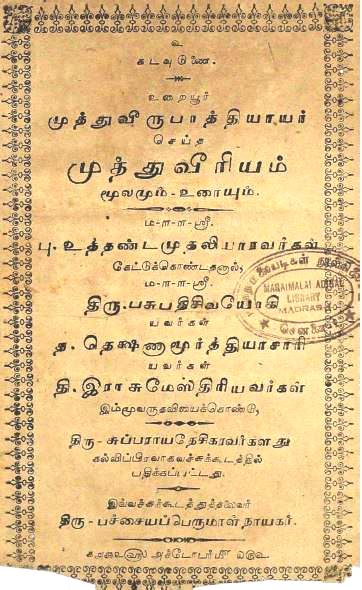 உ
கடவுடுணை.
உறையூர்
முத்துவீருபாத்தியாயர்
செய்த
முத்துவீரியம்
மூலமும் - உரையும்.
ம-ா-ா-ஸ்ரீ.
பு. உத்தண்டமுதலியாரவர்கள்
கேட்டுக்கொண்டதனால்,
ம-ா-ா-ஸ்ரீ.
திரு. பசுபதிசிவயோகி
யவர்கள்
த. தெக்ஷணாமூர்த்தியாசாரி
யவர்கள்
தி. இராசுமேஸ்திரியவர்கள்
இம்மூவருதவியைக்கொண்டு,
திரு - சுப்பராயதேசிகரவர்களது
கல்விப்பிரவாகவச்சுக்கூடத்தில்
பதிக்கப்பட்டது.
இவ்வச்சுக்கூடத்துத்தலைவர்
திரு - பச்சையப்பெருமாள் நாயகர்.
அக்டோபர்
மறைமலையடிகள் நூல்நிலையம்
MARAIMALAI ADIGAL
LIBRARY
MADRAS
சென்னை